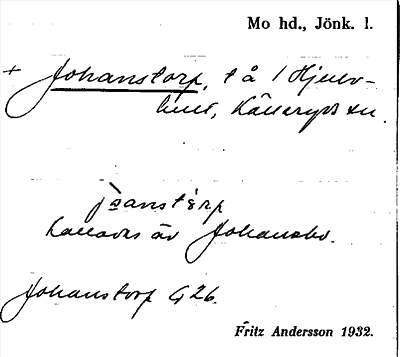 Mo hd., Jönk. l.
+ Johanstorp, t å 1 Hjulv-
hult, Källeryds sn.
jòanstàrp
kallades äv Johansbo.
Johanstorp G 26.
Fritz Andersson 1932.